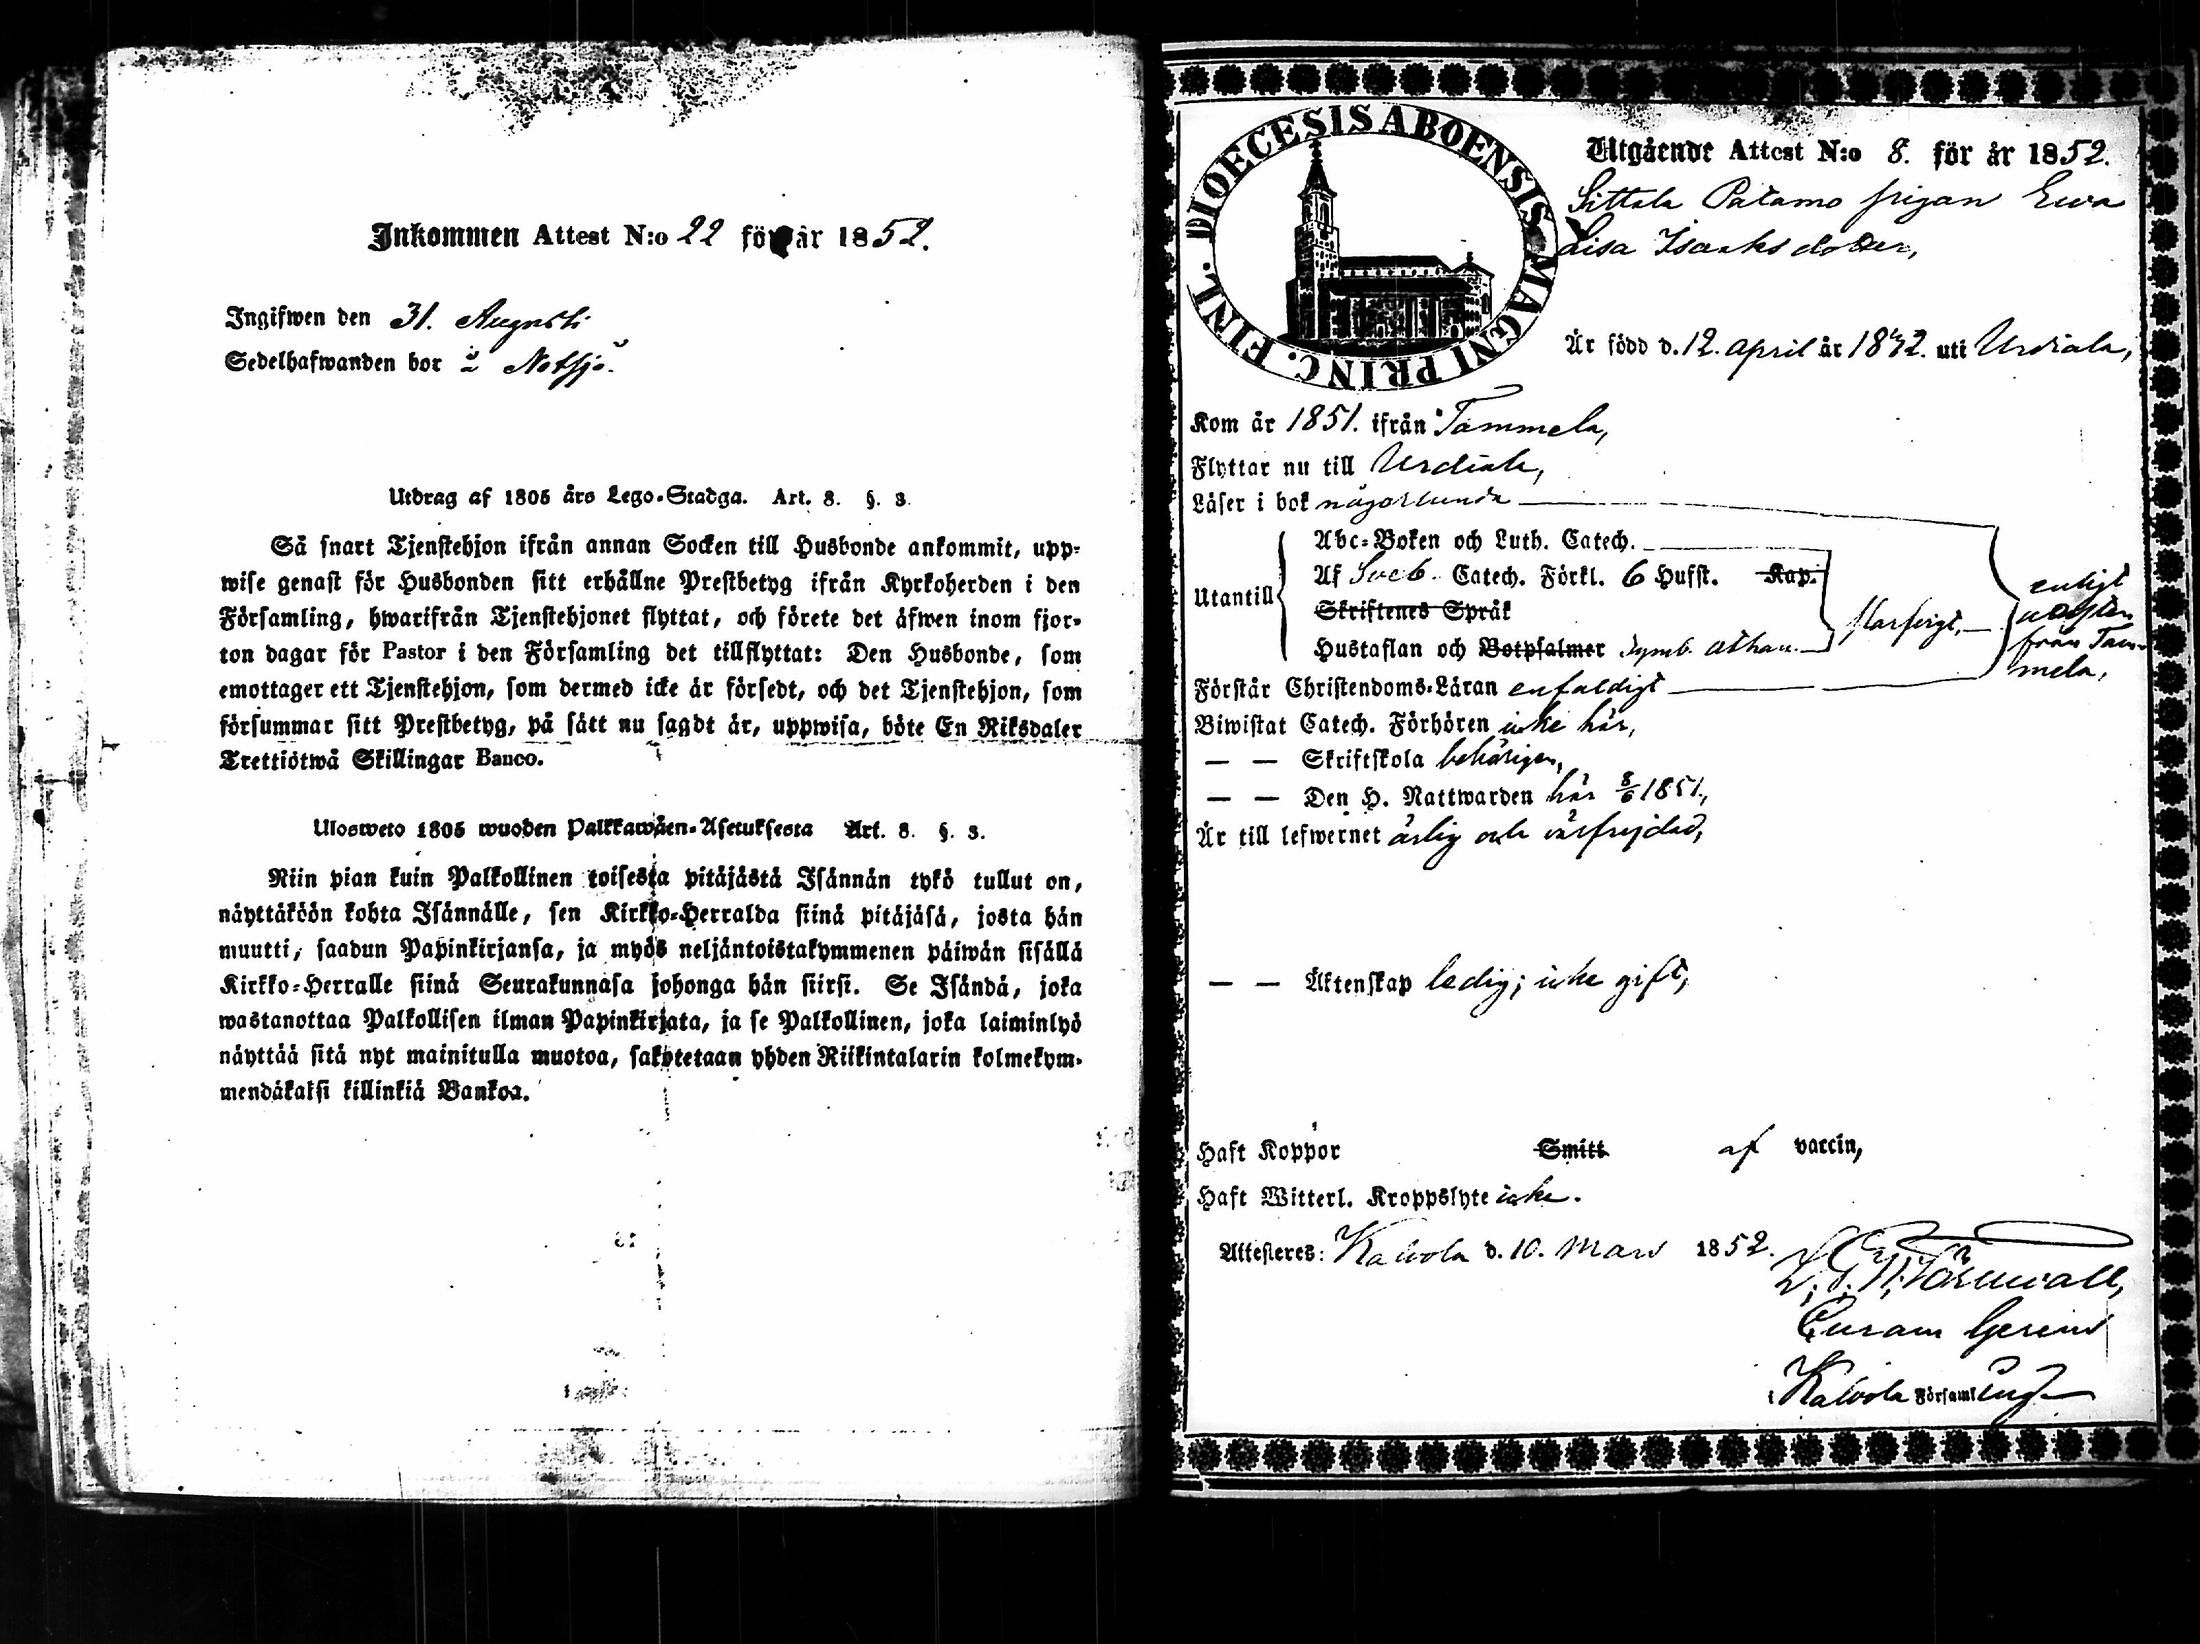 Inkommen Attest N:o 22 för år 1852.
Ingifwen den 31. Augusti
Sedelhafwanden bor i Notsjö.
Utdrag af 1805 års Lego-Stadga. Art. 8. §. 3.
Så snart Tjenstehjon ifrån annan Socken till Husbonde ankommit, upp-
wise genast för Husbonden sitt erhållne Prestbetyg ifrån Kyrkoherden i den
Församling, hwarifrån Tjenstehjonet flyttat, och förete det äfwen inom fjor-
ton dagar för Pastor i den Församling det tillflyttat: Den Husbonde, som
emottager ett Tjenstehjon, som dermed icke är försedt, och det Tjenstehjon, som
försummar sitt Prestbetyg, på sätt nu sagdt är, uppwisa, böte En Riksdaler
Trettiotwå Skillingar Banco.
Ulosweto 1805 wuoden Palkkawäen-Asetuksesta Art. 8. §. 3.
Niin pian kuin Palkollinen toisesta pitäjästä Isännän tykö tullut on,
näyttäköön kohta Isännälle, sen Kirkko-Herralda siinä pitäjäsä, josta hän
muutti, saadun Papinkirjansa, ja myös neljäntoistakymmenen päiwän sisällä
Kirkko-Herralle siinä Seurakunnasa johonga hän siirsi. Se Isändä, joka
wastanottaa Palkollisen ilman Papinkirjata, ja se Palkollinen, joka laiminlyö
näyttää sitä nyt mainitulla muotoa, sakotetaan yhden Riikintalarin kolmekym-
mendäkaksi killinkiä Bankoa.
DIOECESIS ABOENSIS MAGNI PRINC. FINL.
Utgående Attest N:o 8. för år 1852.
Sittala Patamo pigan Ewa
Lisa Isaaksdotter,
Är född d. 12. april år 1832. uti Urdiala,
Kom år 1851. ifrån Tammela,
Flyttar nu till Urdiala,
Läser i bok någorlunda
Utantill
Abc-Boken och Luth. Catech.
Af Sveb. Catech. Förkl. 6 Hufst. Kap.
Skriftenes Språk
Hustaflan och Botpsalmer Symb. Athan.
starfvigt,
enligt
attesten
från Tam-
mela,
Förstår Christendoms-Läran enfaldigt
Biwistat Catech. Förhören icke här,
— — Skriftskola behörigen,
— — Den H. Nattwarden här 8/6 1851,
Är till lefwernet ärlig och wälfrejdad,
— — Äktenskap ledig; icke gift,
Haft Koppor Smitt af vaccin,
Haft Witterl. Kroppslyte icke.
Attesteras: Kalvola d. 10. Mars 1852.
Törnwall,
Curam Gerens
i Kalvola Församling